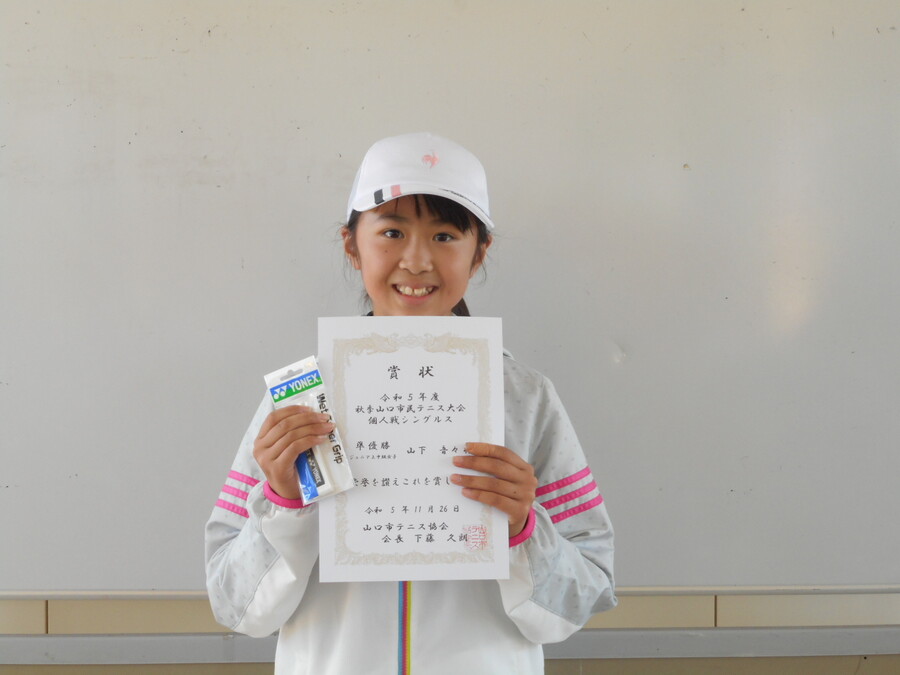 賞状
令和5年度
秋季山口市民テニス大会
個人戦シングルス
準優勝 山下 音々
ジュニア上中級女子
栄誉を讃えこれを賞し
令和5年11月26日
山口市テニス協会
会長 下藤 久朗
YONEX
Wet Super Grip